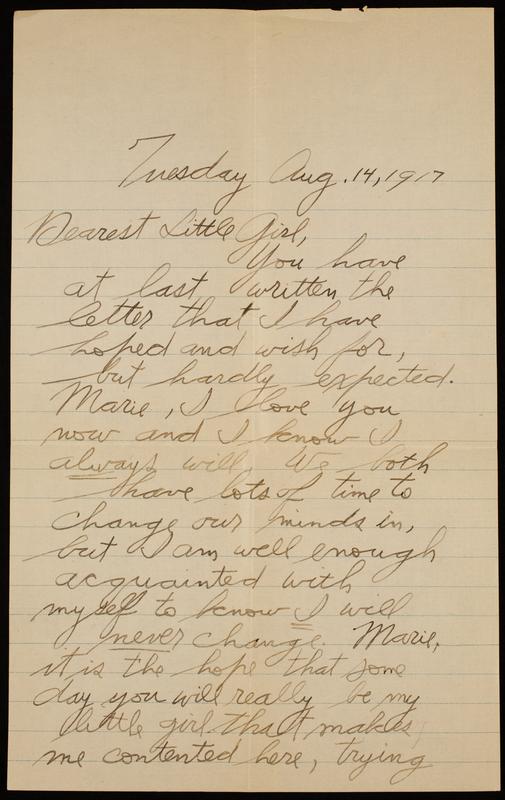 Tuesday Aug. 14, 1917
Dearest Little Girl,
You have
at last written the
letter that I have
hoped and wish for,
but hardly expected.
Marie, I love you
now and I know I
always will. We both
have lots of time to
change our minds in,
but I am well enough
acquainted with
myself to know I will
never change. Marie,
it is the hope that some
day you will really be my
little girl that makes
me contented here, trying